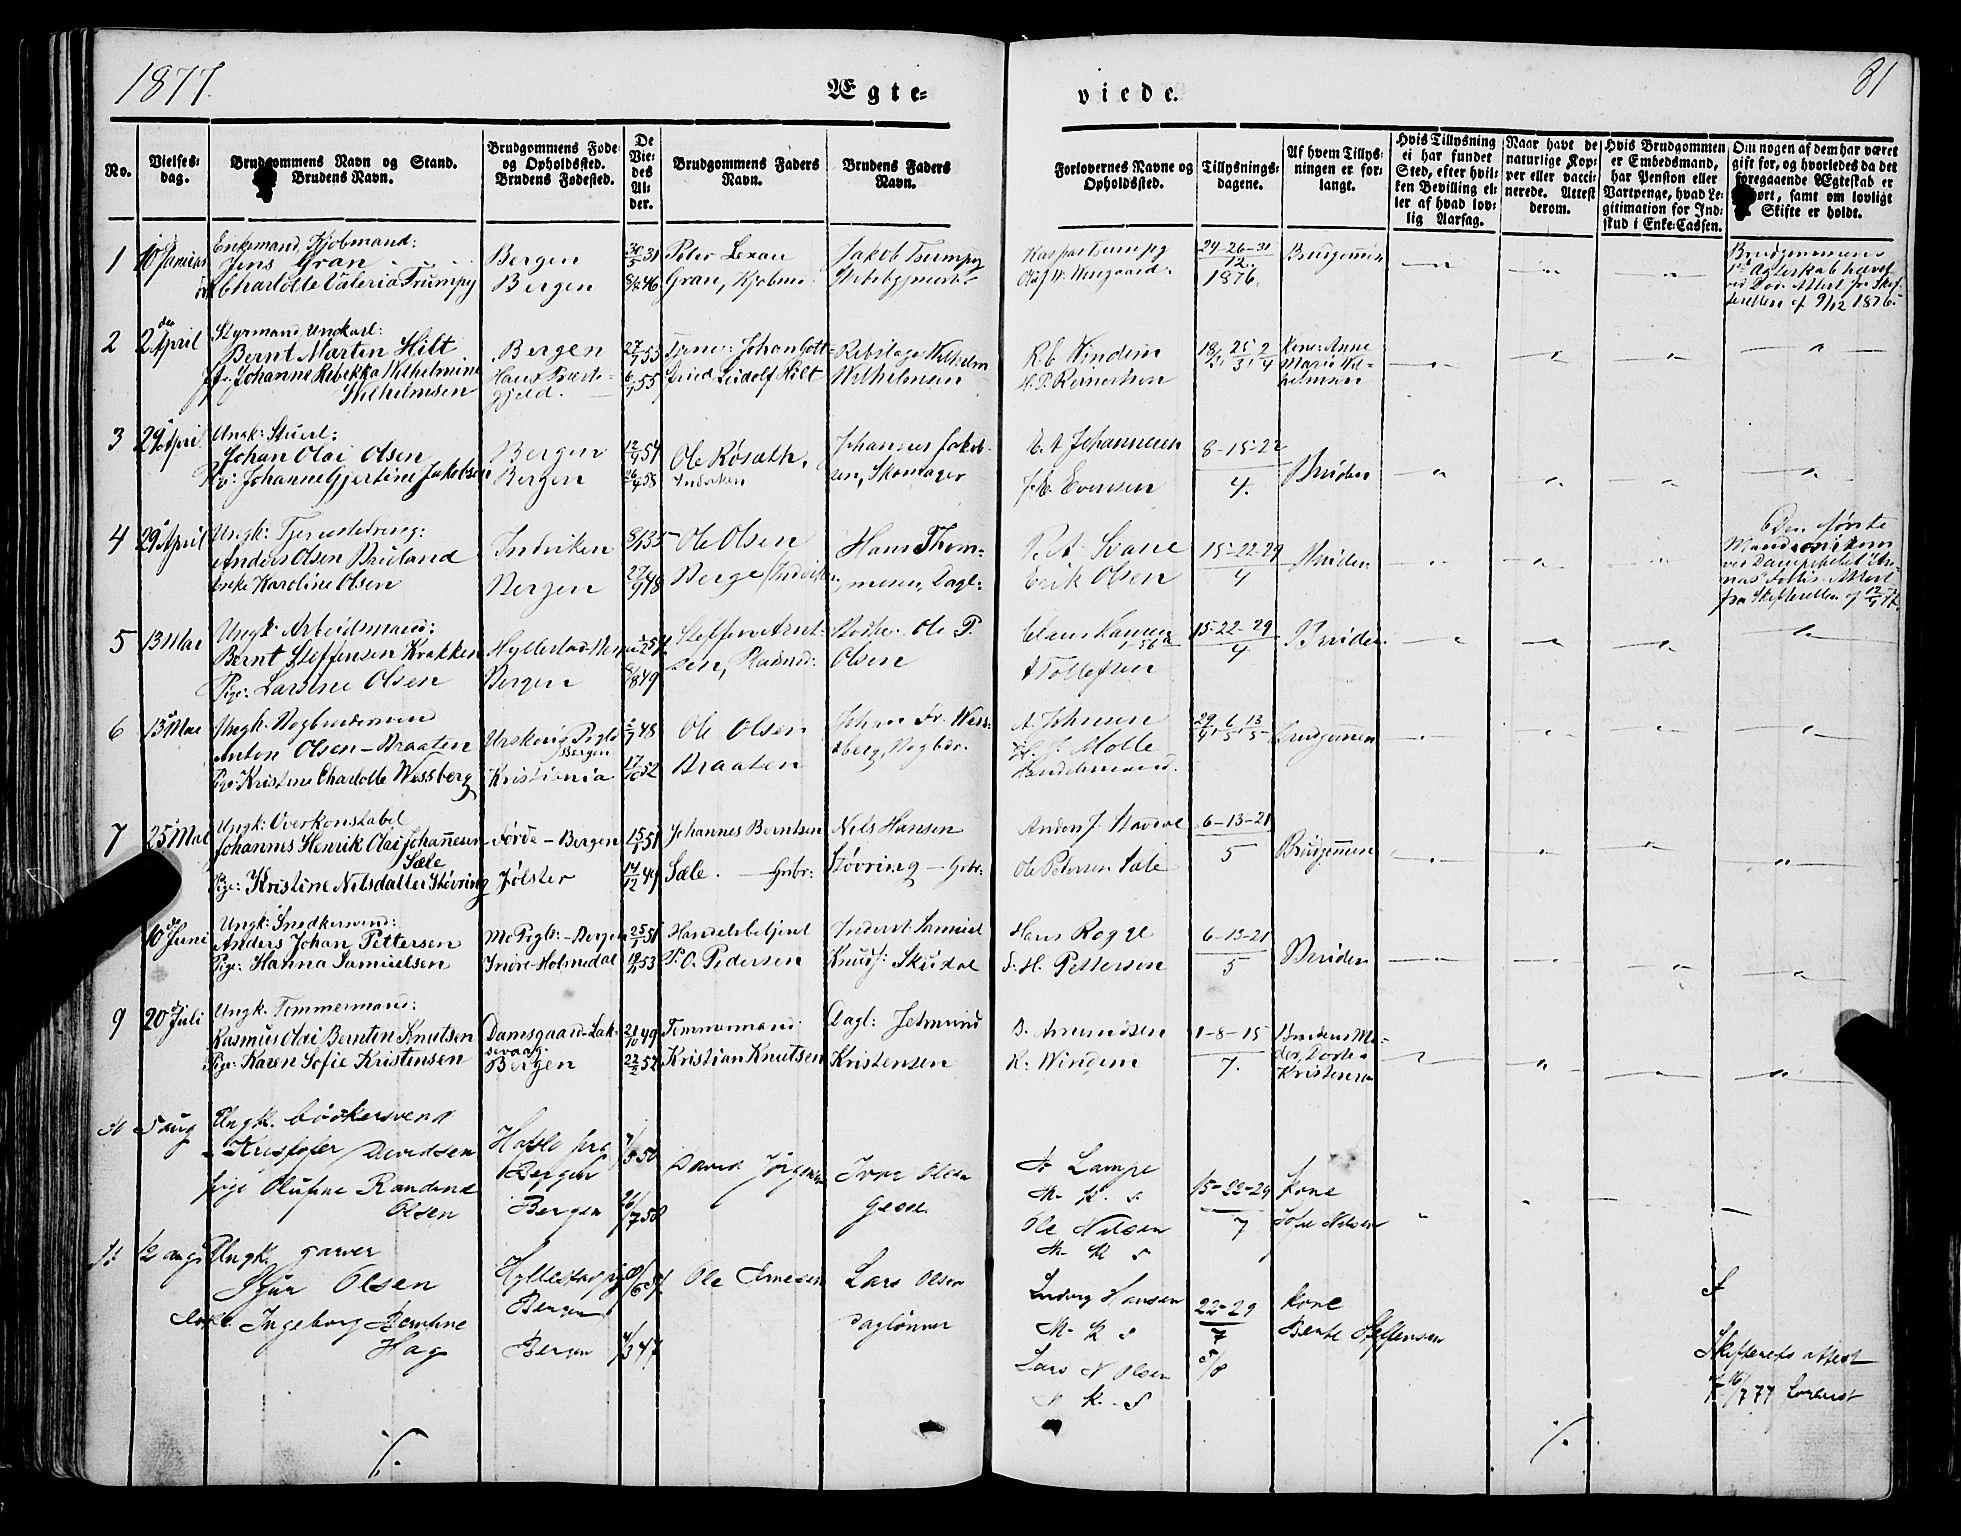 1877.
Ægte-
viede.
81
No.
Vielses-
dag.
Brudgommens Navn og Stand.
Brudens Navn.
Brudgommens Føde-
og Opholdssted.
Brudens Fødested.
De
Vie-
des
Al-
der.
Brudgommens Faders
Navn.
Brudens Faders
Navn.
Forlovernes Navne og
Opholdssted.
Tillysnings-
dagene.
Af hvem Tillys-
ningen er for-
langt.
Hvis Tillysning
ei har fundet
Sted, efter hvil-
ken Bevilling el-
ler af hvad lov-
lig Aarsag.
Naar havt de
naturlige Kop-
per eller vacci-
nerede. Attest
derom.
Hvis Brudgommen
er Embedsmand,
har Pension eller
Vartpenge, hvad Le-
gitimation for Ind-
skud i Enke-Cassen.
Om nogen af dem har været
gift før, og hvorledes da det
foregaaende Ægteskab er
ort, samt om lovligt
Skifte er holdt.
1
Enkemand Kjøbmand:
Jens Gran
Charlotte Valeria Trumpy
Bergen
Bergen
30/5 31
8/8 46
Peter Lexau
Gran, Kjøbm:
Jakob Trumpy
Kaspar Trumpy
24-26-31
12.
1876.
Brudgommen
Brudgommens
1ste Ægteskab hævet
ved Død. Attest fra Skif-
teretten af 9/12 1876
2
2den April
Styrmand Ungkarl:
Bernt Martin Hilt
Johanne Rebekka Wilhelmine
Wilhelmsen
Bergen
Haus Præste-
gjeld.
27/7 53
6/7 55
Johan Gott-
fried Ludolf Hilt
Rebslager Wilhelm
Wilhelmsen
R. C. Windem
Kone: Anne
Marie Wil-
helmsen
3
29 April
Ungk: Stuert:
Johan Olai Olsen
Johanne Gjertine Jakobsen
Bergen
Bergen
12/9 54
Ole Røsæth,
Indviken
Johannes Jakob-
sen, Skomager
E. A. Johannesen
Evensen
8-15-22
4.
Bruden
4
29 April
Ungk:
Anders Olsen Brieland
Enke Karoline Olsen
Indviken
Bergen
27/9 48
Ole Olsen
Berge, Indviken
Hans Thom-
mesen, Dagl:
P. A. Svane
Erik Olsen
15-22-29
4
Bruden
Den første
fra Skifteretten af 12/4 77
5
13 Mai
Ungk: Arbeidsmand:
Bernt Steffensen Krakken
Pige: Larsine Olsen
Hyllestad-Bergen
Bergen
8/8 49
Steffen Arnt-
sen, Pladsmd:
Ole P.
Olsen
Claus Hansen
A Tollefsen
15-22-29
4
Bruden
6
13 Mai
Ungk. Bogbindersvend
Anton Olsen-Braaten
Pige Kristine Charlotte Wessberg
Urskoug Pgld
Bergen
Kristiania
17/10 52
Ole Olsen
Braaten
Johan Fr. Wess-
berg, Bogbdr.
A. Johnsen
Molle
Handelsmand.
29/4, 6/5, 13/5
Brudgommen
7
25 Mai
Ungk: Overkonstabel
Johannes Henrik Olai Johannesen
Sæle
Pige: Kristine Nilsdatter Støvring
Førde - Bergen
Jølster
15/1 51
14/12 49
Johannes Berntsen
Sæle. - Grbr:
Nils Hansen
Støvring - Grbr:
Anders J.
Ole Pedersen Sæle
6-13-21
5
Brudgommen
10de Juni
Ungk: Snedkersvend:
Anders Johan Pettersen
Pige: Hanna Samuelsen
Mo Pgld:-Bergen
Indre-Holmedal
25/1 51
Handelsbetjent
P. O. Pedersen
Inderst Samuel
Knuds: Skudal
Hans Rogge
S. H. Petterson
6-13-21
5
Bruden
9
20de Juli
Ungk. Tømmermand:
Rasmus Olai Berntin Knutsen
Pige: Karen Sofie Kristensen
Damsgaard-Lak-
sevaag:
Bergen
21/10 49
22/2 52
Tømmermand
Kristian Knutsen
Dagl: Jetmund
Kristensen
B. Amundsen
K. Windem
1-8-15
7.
Brudens Mo-
der, Dorthea
Kristensen
10
5 aug
Ungk. bødkersvend
Kristofer Davidsen
pige Olufine Randine
Olsen
Hafslo
Bergen
Bergen
26/7 50
David Jørgensen
Iver Olsen
Lampe
M. K. S
Ole Nilsen
M. K S
15-22-29
7
kone
Sofie Nilsen
11
12 aug
Ungk. garver
Sjur Olsen
enke Ingeborg Berntine
Hag
Hyllestad
Bergen
Bergen
4/3 47
Ole Arnesen
Lars Olsen
daglønner
Ludvig Hansen
M. K S
Lars N Olsen
K. S
22-29
7
5/8
kone
Berte Steffensen
Skifterets attest